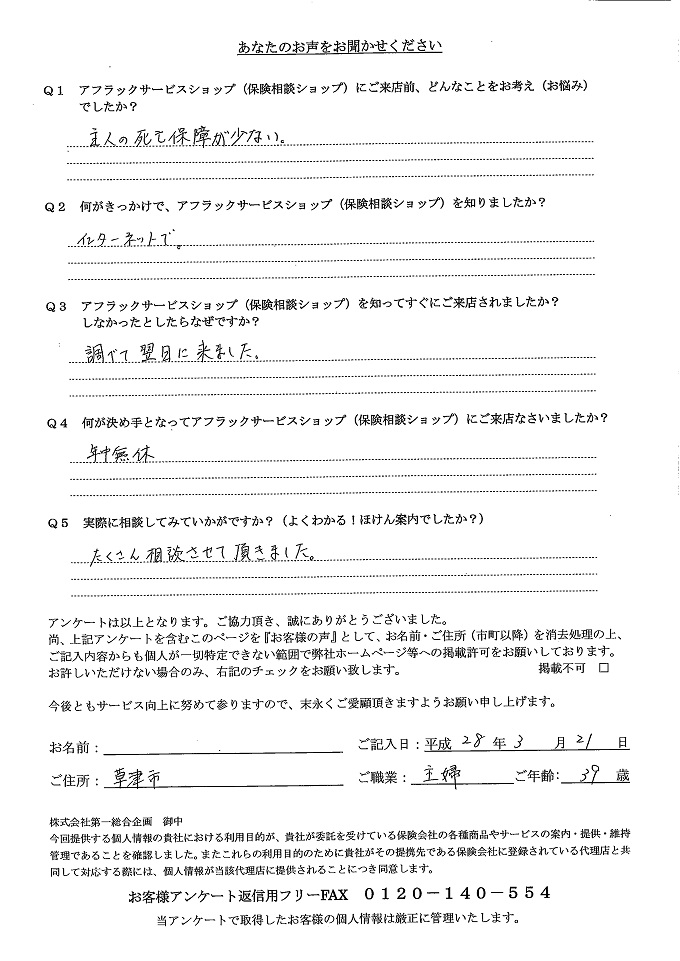 あなたのお声をお聞かせください
Q1 アフラックサービスショップ（保険相談ショップ）にご来店前、どんなことをお考え（お悩み）
でしたか？
主人の死亡保障が少ない。
Q2 何がきっかけで、アフラックサービスショップ（保険相談ショップ）を知りましたか？
インターネットで。
Q3 アフラックサービスショップ（保険相談ショップ）を知ってすぐにご来店されましたか？
しなかったとしたらなぜですか？
調べて翌日に来ました。
Q4 何が決め手となってアフラックサービスショップ（保険相談ショップ）にご来店なさいましたか？
年中無休
Q5 実際に相談してみていかがですか？（よくわかる！ほけん案内でしたか？）
たくさん相談させて頂きました。
アンケートは以上となります。ご協力頂き、誠にありがとうございました。
尚、上記アンケートを含むこのページを『お客様の声』として、お名前・ご住所（市町以降）を消去処理の上、
ご記入内容からも個人が一切特定できない範囲で弊社ホームページ等への掲載許可をお願いしております。
お許しいただけない場合のみ、右記のチェックをお願い致します。 掲載不可 □
今後ともサービス向上に努めて参りますので、末永くご愛顧頂きますようお願い申し上げます。
お名前： ご記入日：平成 28 年 3 月 21 日
ご住所： 草津市 ご職業： 主婦 ご年齢： 39 歳
株式会社第一総合企画 御中
今回提供する個人情報の貴社における利用目的が、貴社が委託を受けている保険会社の各種商品やサービスの案内・提供・維持
管理であることを確認しました。またこれらの利用目的のために貴社がその提携先である保険会社に登録されている代理店と共
同して対応する際には、個人情報が当該代理店に提供されることにつき同意します。
お客様アンケート返信用フリーFAX 0120－140－554
当アンケートで取得したお客様の個人情報は厳正に管理いたします。